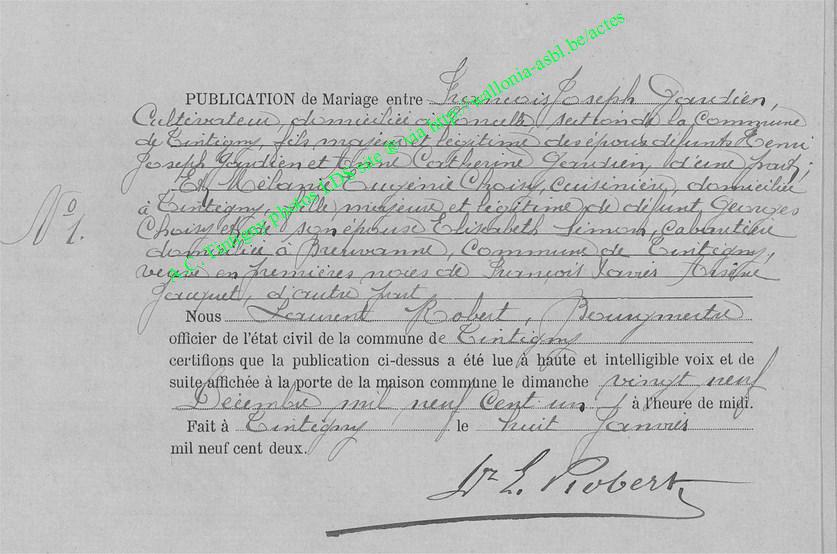 PUBLICATION de Mariage entre François Joseph Gaudien,
Cultivateur, domicilié à section de la Commune
de Tintigny, fils majeur et légitime des époux défunts Henri
Joseph Gaudien et dame Catherine Gaudien, d'une part;
Et Mélanie Eugénie Choisy, cuisinière, domiciliée
à Tintigny, fille majeure et légitime de défunt Georges
Choisy et de son épouse Elisabeth Simon, cabaretière
domiciliée à Breuvanne, commune de Tintigny,
veuve en premières noces de François Xavier
Jacquet, d'autre part
No 1.
Nous Laurent Robert, Bourgmestre
officier de l'état civil de la commune de Tintigny
certifions que la publication ci-dessus a été lue à haute et intelligible voix et de
suite affichée à la porte de la maison commune le dimanche vingt neuf
Décembre mil neuf cent un à l'heure de midi.
Fait à Tintigny le huit Janvier
mil neuf cent deux.
L. Robert
A.C. Tintigny photos LDS site © via http://wallonia-asbl.be/actes